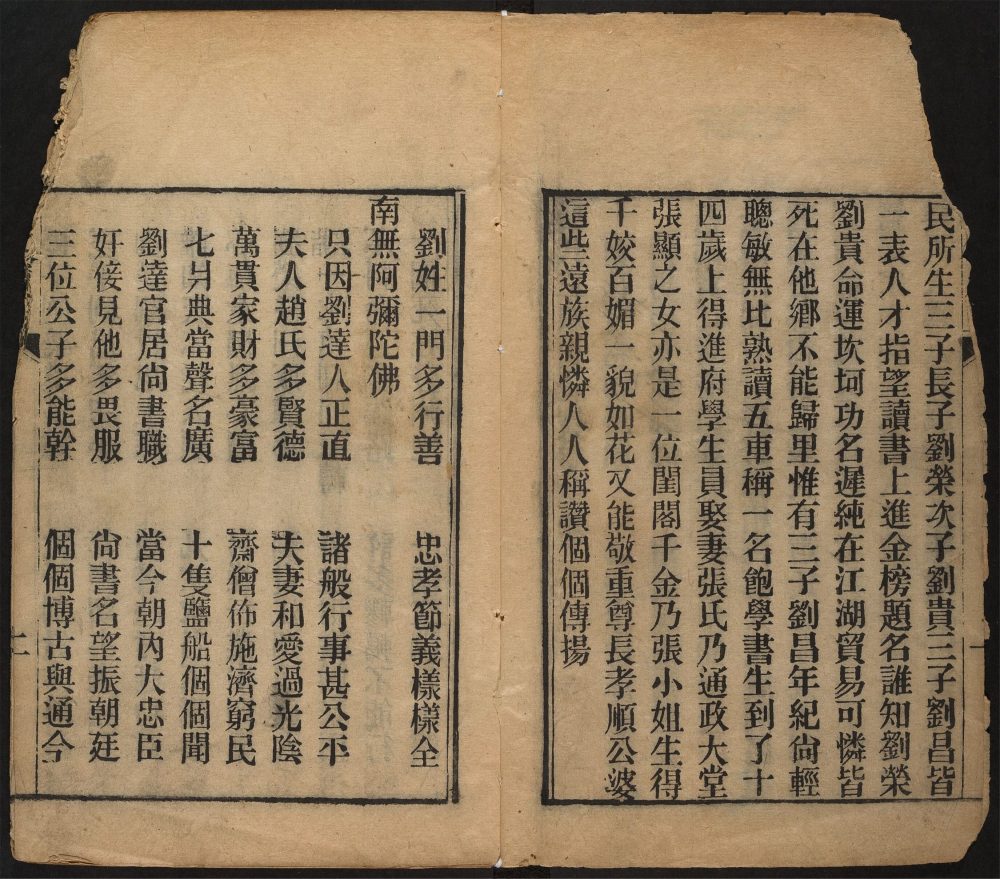 民所生三子長子劉榮次子劉貴三子劉昌皆
一表人才指望讀書上進金榜題名誰知劉榮
劉貴命運坎坷功名遲純在江湖貿易可憐皆
死在他鄉不能歸里惟有三子劉昌年紀尙輕
聰敏無比熟讀五車稱一名飽學書生到了十
四歲上得進府學生員娶妻張氏乃通政大堂
張顯之女亦是一位閨閣千金乃張小姐生得
千姣百媚一貌如花又能敬重尊長孝順公婆
這些遠族親憐人人稱讚個個傳揚
劉姓一門多行善　忠孝節義樣樣全
南無阿彌陀佛
只因劉達人正直　諸般行事甚公平
夫人趙氏多賢德　夫妻和愛過光陰
萬貫家財多豪富　齋僧佈施濟窮民
七爿典當聲名廣　十隻鹽船個個聞
劉達官居尙書職　當今朝內大忠臣
奸佞見他多畏服　尙書名望振朝廷
三位公子多能幹　個個博古與通今